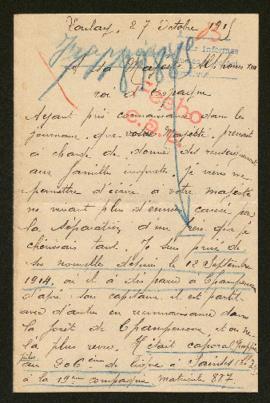 Toulon, 27 Octobre 191
A Sa Majesté Alphonse XIII
roi d'Espagne
Ayant pris connaissance dans les
journaux, que votre Majesté, prenait
à charge de donner des renseignements
aux familles inquiètes. Je viens me
permettre d'écrire à votre majesté
ne vivant plus d'ennui causé par
la séparation d'un frère que je
cherissais tant. Je suis privé de
ses nouvelles depuis le 12 Septembre
1914, où il a disparu à Champenoux
d'après son capitaine, il est parti
avec d'autres en reconnaissance dans
la forêt de Champenoux, et on ne
l'a plus revu. Il était caporal
au 206ème de ligne à Saintes
à la 19ème compagnie matricule 887